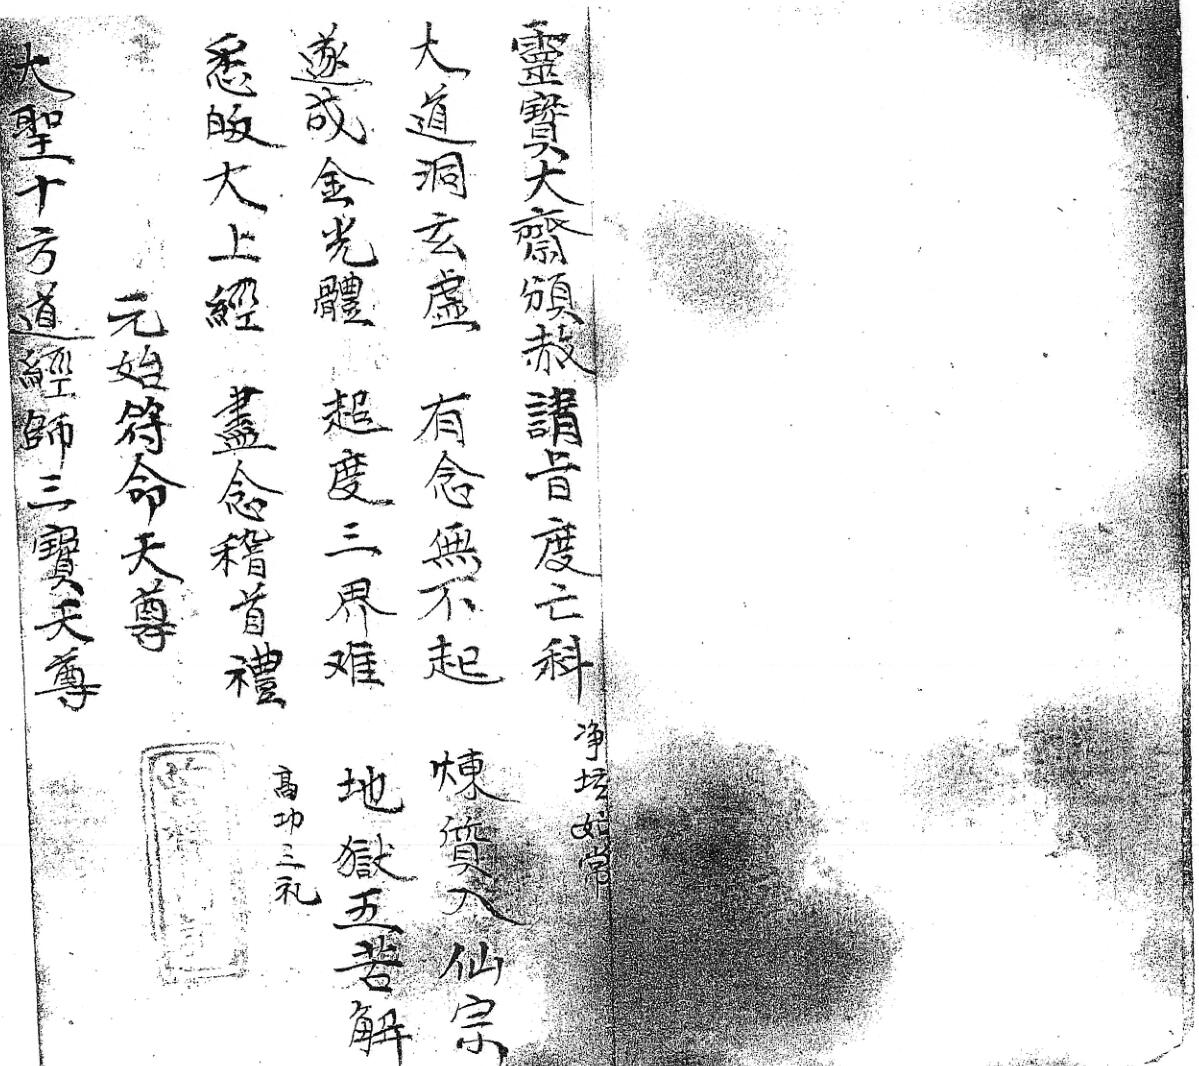 靈寶大齋頒赦請旨度亡科 净坛如常
大道洞玄虛 有念無不起 煉質入仙宗
遂成金光體 超度三界难 地獄五苦解
悉皈大上經 盡念稽首禮 高功三礼
元始符命天尊
大聖十方道經師三寶天尊